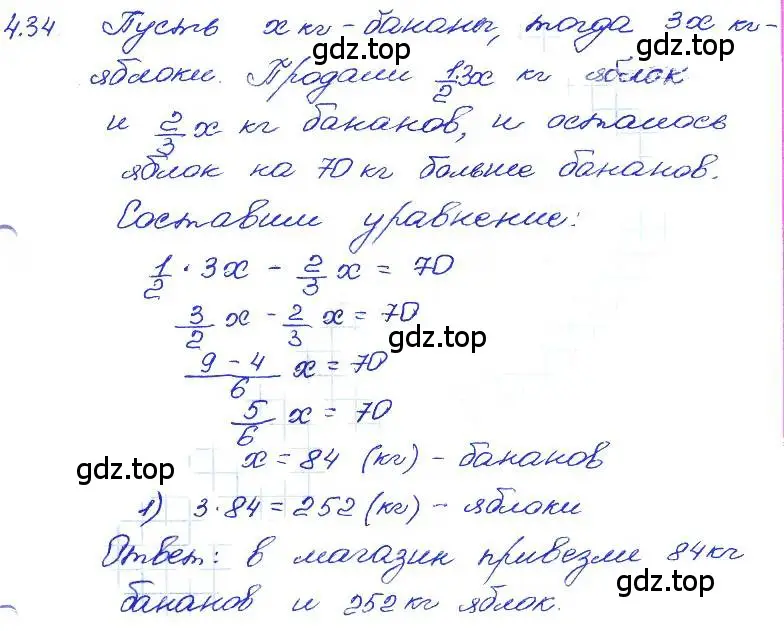 4.34 Пусть x кг - бананы, тогда 3x кг -
gdz.top
яблоки. Продали 1/2·3x кг яблок
gdz.top
и 2/3 x кг бананов, и осталось
яблок на 70 кг больше бананов.
Составим уравнение:
1/2 · 3x - 2/3 x = 70
3/2 x - 2/3 x = 70
gdz.top
(9 - 4)/6 x = 70
5/6 x = 70
x = 84 (кг) - бананов
gdz.top
1) 3·84 = 252 (кг) - яблоки
Ответ: в магазин привезли 84 кг
gdz.top
бананов и 252 кг яблок.